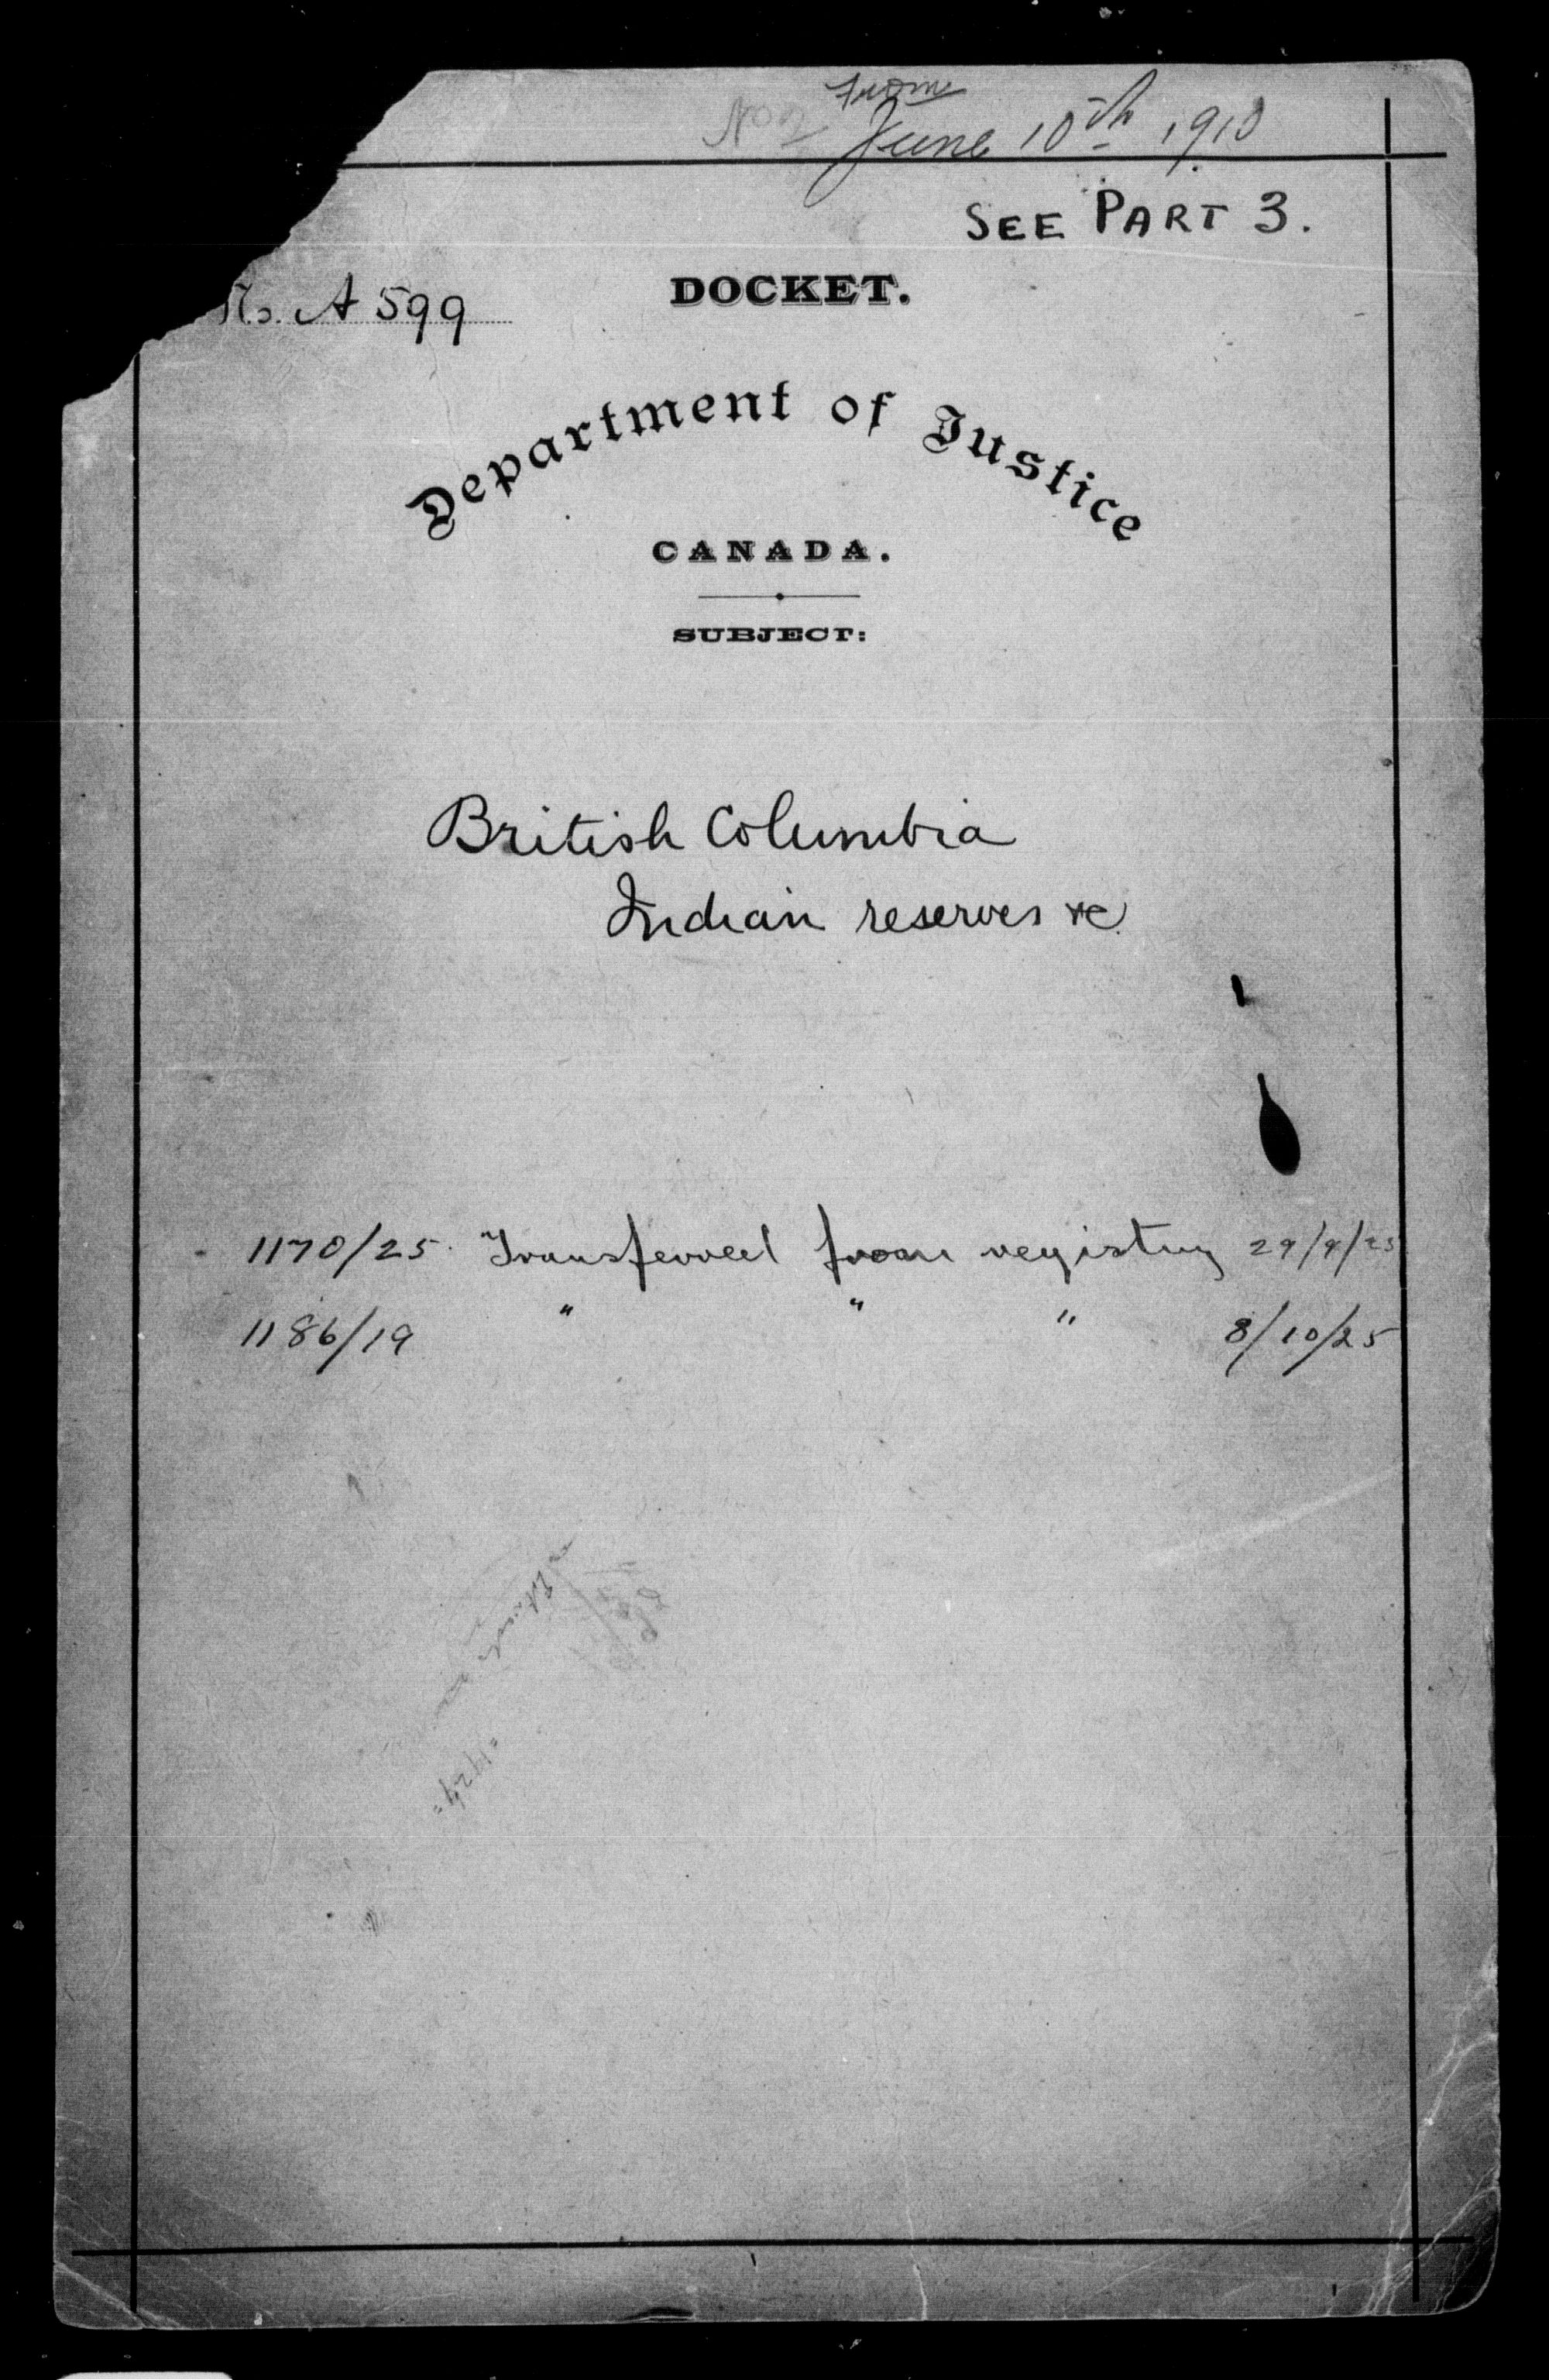 No 2 From
June 10th 1910
SEE PART 3.
DOCKET.
No. A 599
Department of Justice
CANADA.
SUBJECT:
British Columbia
Indian reserves &c.
1170/25. Transferred from registry 29/9/25
1186/19 " " " 8/10/25